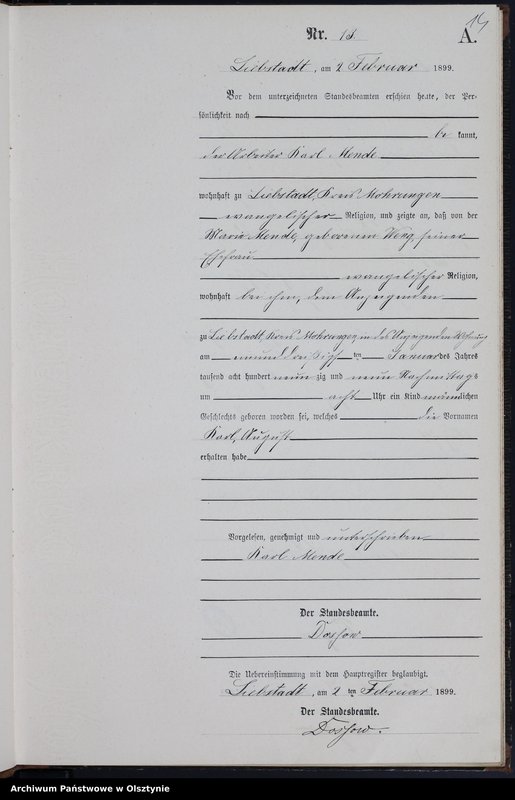 14
Nr. 13.
A.
Liebstadt, am 2 Februar 1899.
Vor dem unterzeichneten Standesbeamten erschien heute, der Per-
sönlichkeit nach
be kannt,
der Arbeiter Karl Mende
wohnhaft zu Liebstadt, Kreis Mohrungen
evangelischer Religion, und zeigte an, daß von der
Maria Mende, geborenen Weng, seiner
Ehefrau
evangelischer Religion,
wohnhaft bei ihm, dem Anzeigenden
zu Liebstadt, Kreis Mohrungen, in des Anzeigenden Wohnung
am einunddreißigsten Januar des Jahres
tausend acht hundert neun zig und neun Nachmittags
um acht Uhr ein Kind männlichen
Geschlechts geboren worden sei, welches die Vornamen
Karl, August
erhalten habe
Vorgelesen, genehmigt und unterschrieben
Karl Mende
Der Standesbeamte.
Dossow
Die Uebereinstimmung mit dem Hauptregister beglaubigt.
Liebstadt, am 2 ten Februar 1899.
Der Standesbeamte.
Dossow.
Archiwum Państwowe w Olsztynie